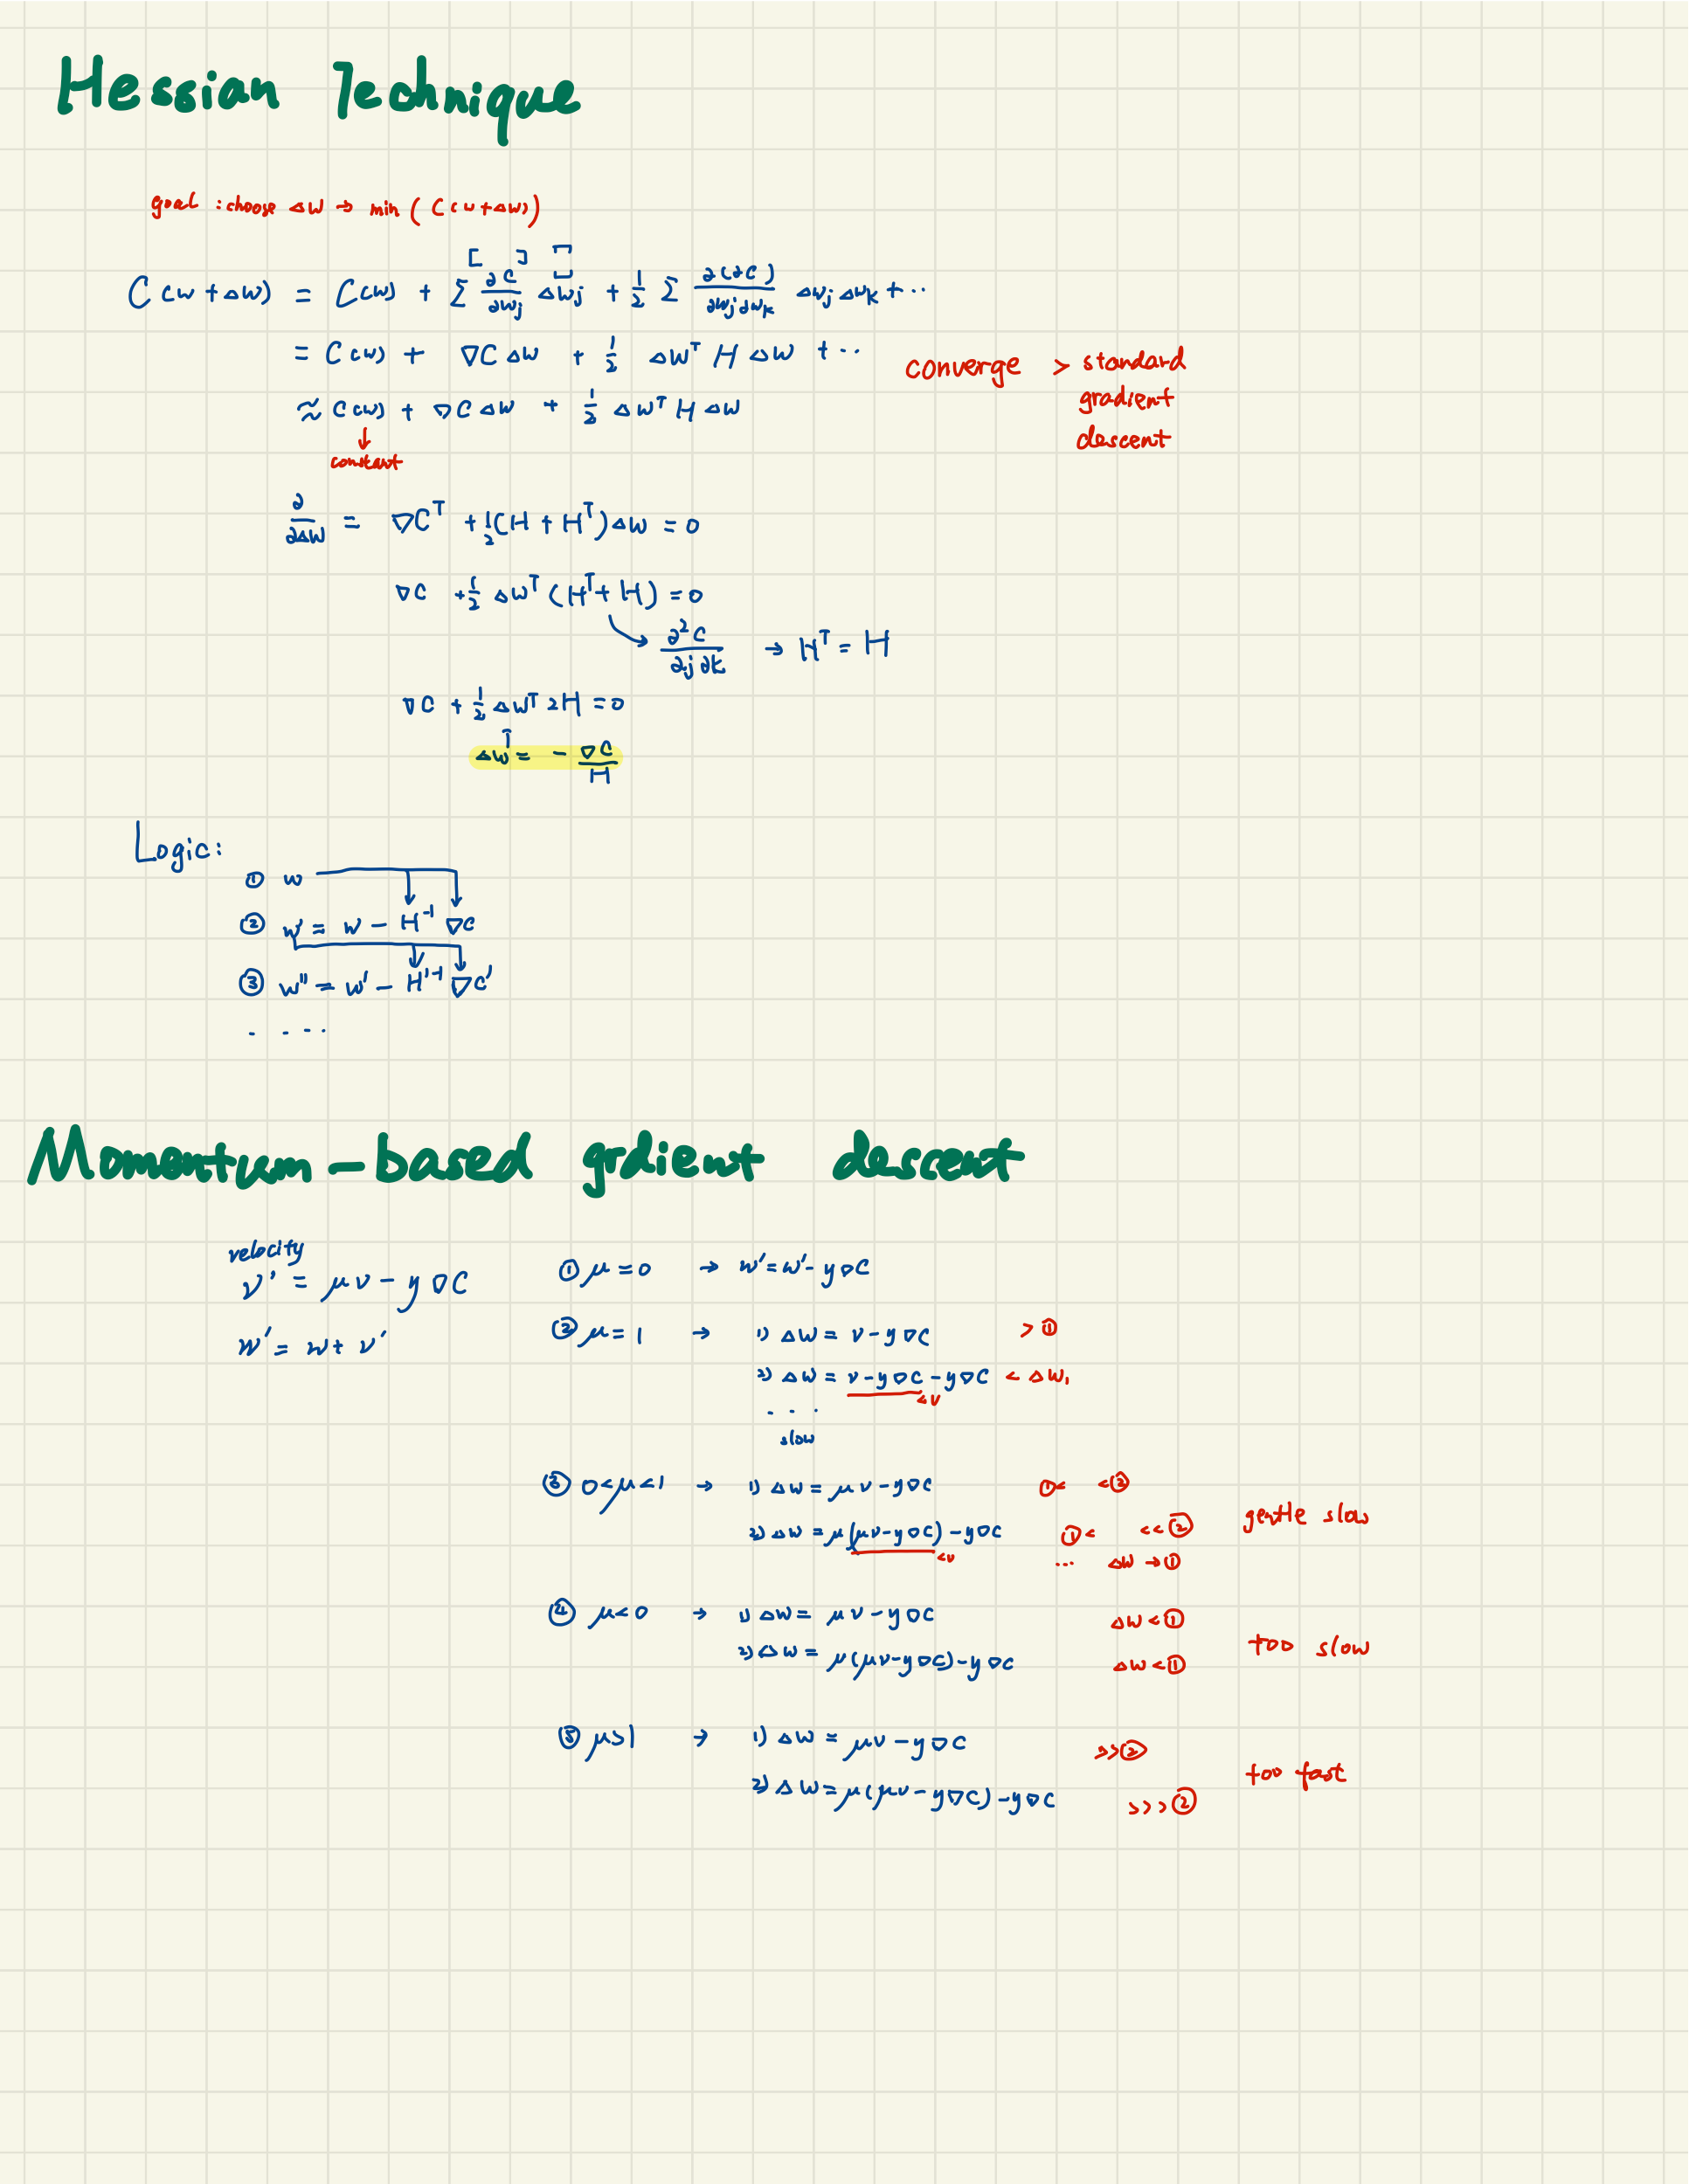 Hessian Technique
goal : choose ΔW → min ( C(w+ΔW))
[ ] [ ]
C(w+Δw) = C(w) + Σ ∂C/∂wj Δwj + 1/2 Σ ∂(∂C)/∂wj∂wk Δwj Δwk + ··
= C(w) + ∇C ΔW + 1/2 ΔW^T H ΔW + ··
converge > standard
gradient
descent
≈ C(w) + ∇C ΔW + 1/2 ΔW^T H ΔW
↓
constant
∂/∂ΔW = ∇C^T + 1/2(H + H^T)ΔW = 0
∇C + 1/2 ΔW^T (H^T + H) = 0
→ ∂²C/∂j∂k → H^T = H
∇C + 1/2 ΔW^T 2H = 0
ΔW^T = - ∇C/H
Logic:
① w
② w' = w - H^-1 ∇C
③ w'' = w' - H'^-1 ∇C'
. . . . .
Momentum-based grdient descent
velocity
v' = μv - y∇C
w' = w + v'
① μ = 0 → w' = w' - y∇C
② μ = 1 → 1) ΔW = v - y∇C > ①
2) ΔW = v - y∇C - y∇C < ΔW₁
<v
. . .
slow
③ 0<μ<1 → 1) ΔW = μv - y∇C ①< <②
2) ΔW = μ(μv - y∇C) - y∇C ①< <<② gentle slow
<v
... ΔW → ①
④ μ<0 → 1) ΔW = μv - y∇C ΔW < ①
2) ΔW = μ(μv - y∇C) - y∇C ΔW < ① too slow
⑤ μ>1 → 1) ΔW = μv - y∇C >>②
2) ΔW = μ(μv - y∇C) - y∇C >>>② too fast